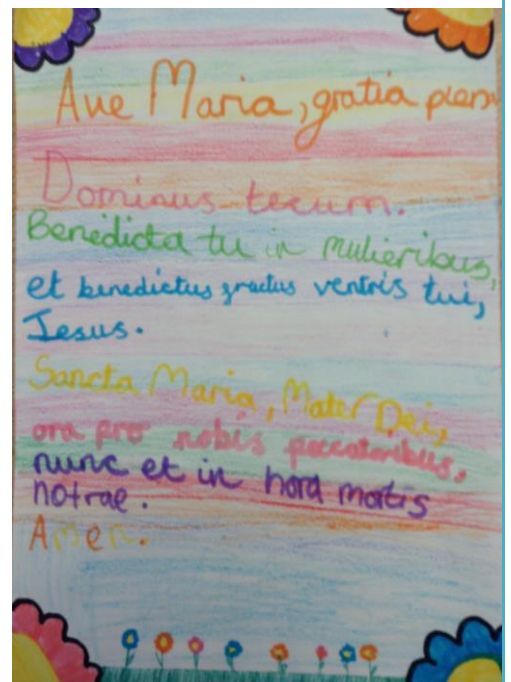 Ave Maria, gratia plena
Dominus tecum.
Benedicta tu in mulieribus,
et benedictus fructus ventris tui,
Jesus.
Sancta Maria, Mater Dei,
ora pro nobis peccatoribus,
nunc et in hora matis
notrae.
Amen.